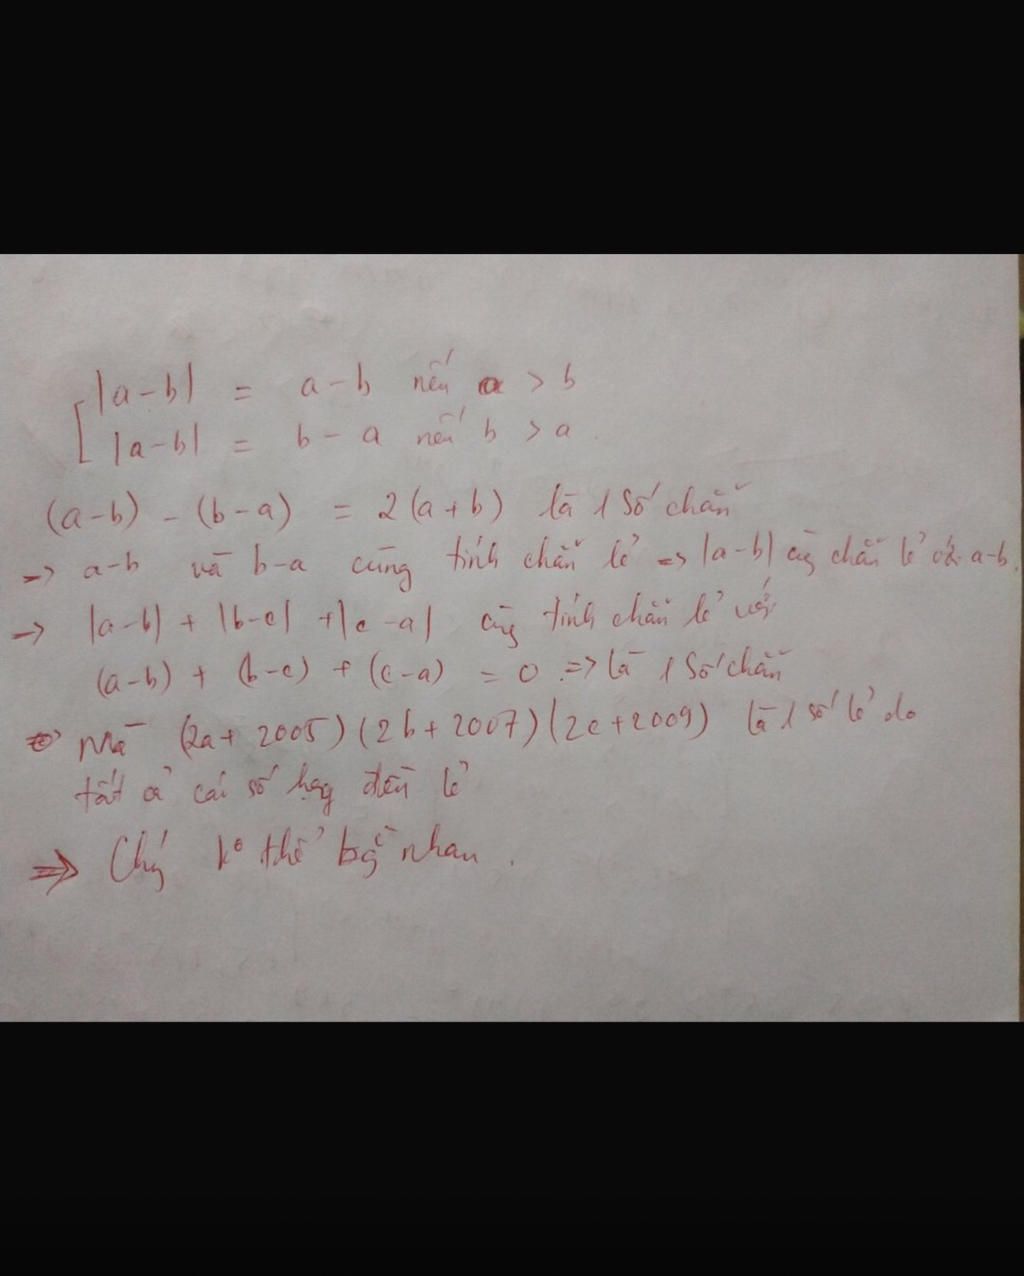 |a-b| = a-b nếu a > b
|a-b| = b-a nếu b > a.
(a-b) - (b-a) = 2(a+b) là 1 số chẵn
→ a-b và b-a cùng tính chẵn lẻ => |a-b| cg chẵn lẻ với a-b.
→ |a-b| + |b-c| + |c-a| cùg tính chẵn lẻ với
(a-b) + (b-c) + (c-a) = 0 => là 1 số chẵn
Mà (2a+2005)(2b+2007)(2c+2009) là 1 số lẻ do
tất cả các số hạg đều lẻ
=> Chúg ko thể bg nhau.